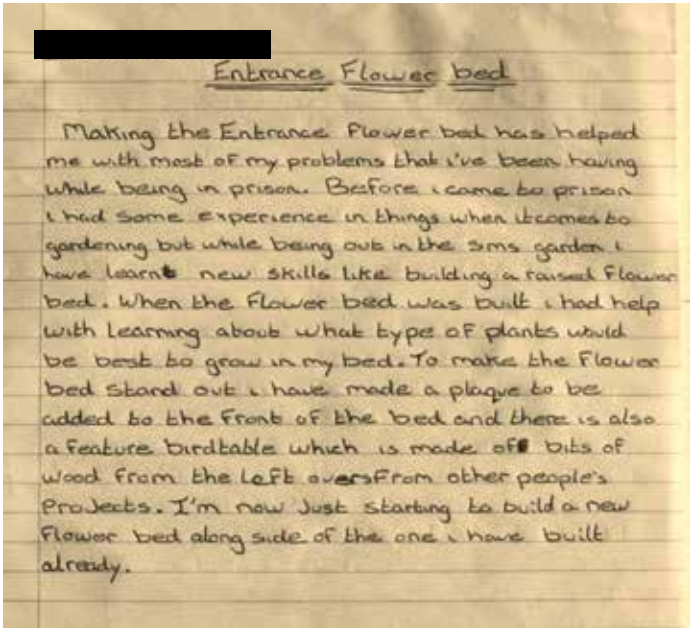 Entrance Flower bed
Making the Entrance Flower bed has helped
me with most of my problems that i've been having
while being in prison. Before i came to prison
i had some experience in things when it comes to
gardening but while being out in the sms garden i
have learnt new skills like building a raised Flower
bed. When the Flower bed was built i had help
with learning about what type of plants would
be best to grow in my bed. To make the Flower
bed stand out i have made a plaque to be
added to the front of the bed and there is also
a feature birdtable which is made of bits of
wood from the left overs From other people's
Projects. I'm now Just starting to build a new
Flower bed along side of the one i have built
already.